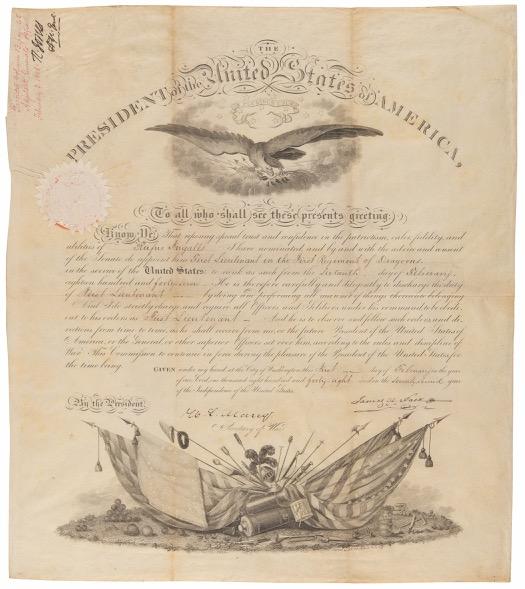 THE
PRESIDENT of the United States of AMERICA,
To all who shall see these presents greeting:
Know Ye, That reposing special trust and confidence in the patriotism, valor, fidelity, and
abilities of Rufus Ingalls I have nominated, and by and with the advice and consent
of the Senate do appoint him First Lieutenant in the First Regiment of Dragoons
in the service of the United States: to rank as such from the day of February
eighteen hundred and forty seven He is therefore carefully and diligently to discharge the duty
of First Lieutenant by doing and performing all manner of things thereunto belonging
And I do strictly charge and require all Officers and Soldiers under his command to be obedi-
ent to his orders as First Lieutenant And he is to observe and follow such orders, and di-
rections from time to time, as he shall receive from me, or the future President of the United States of
America, or the General or other superior Officers set over him, according to the rules and discipline of
War. This Commission to continue in force during the pleasure of the President of the United States for
the time being.
GIVEN under my hand at the City of Washington this first day of February in the year
of our Lord one thousand eight hundred and forty-eight and in the seventy second year
of the Independence of the United States.
By the President
James K. Polk
W. L. Marcy
Secretary of War